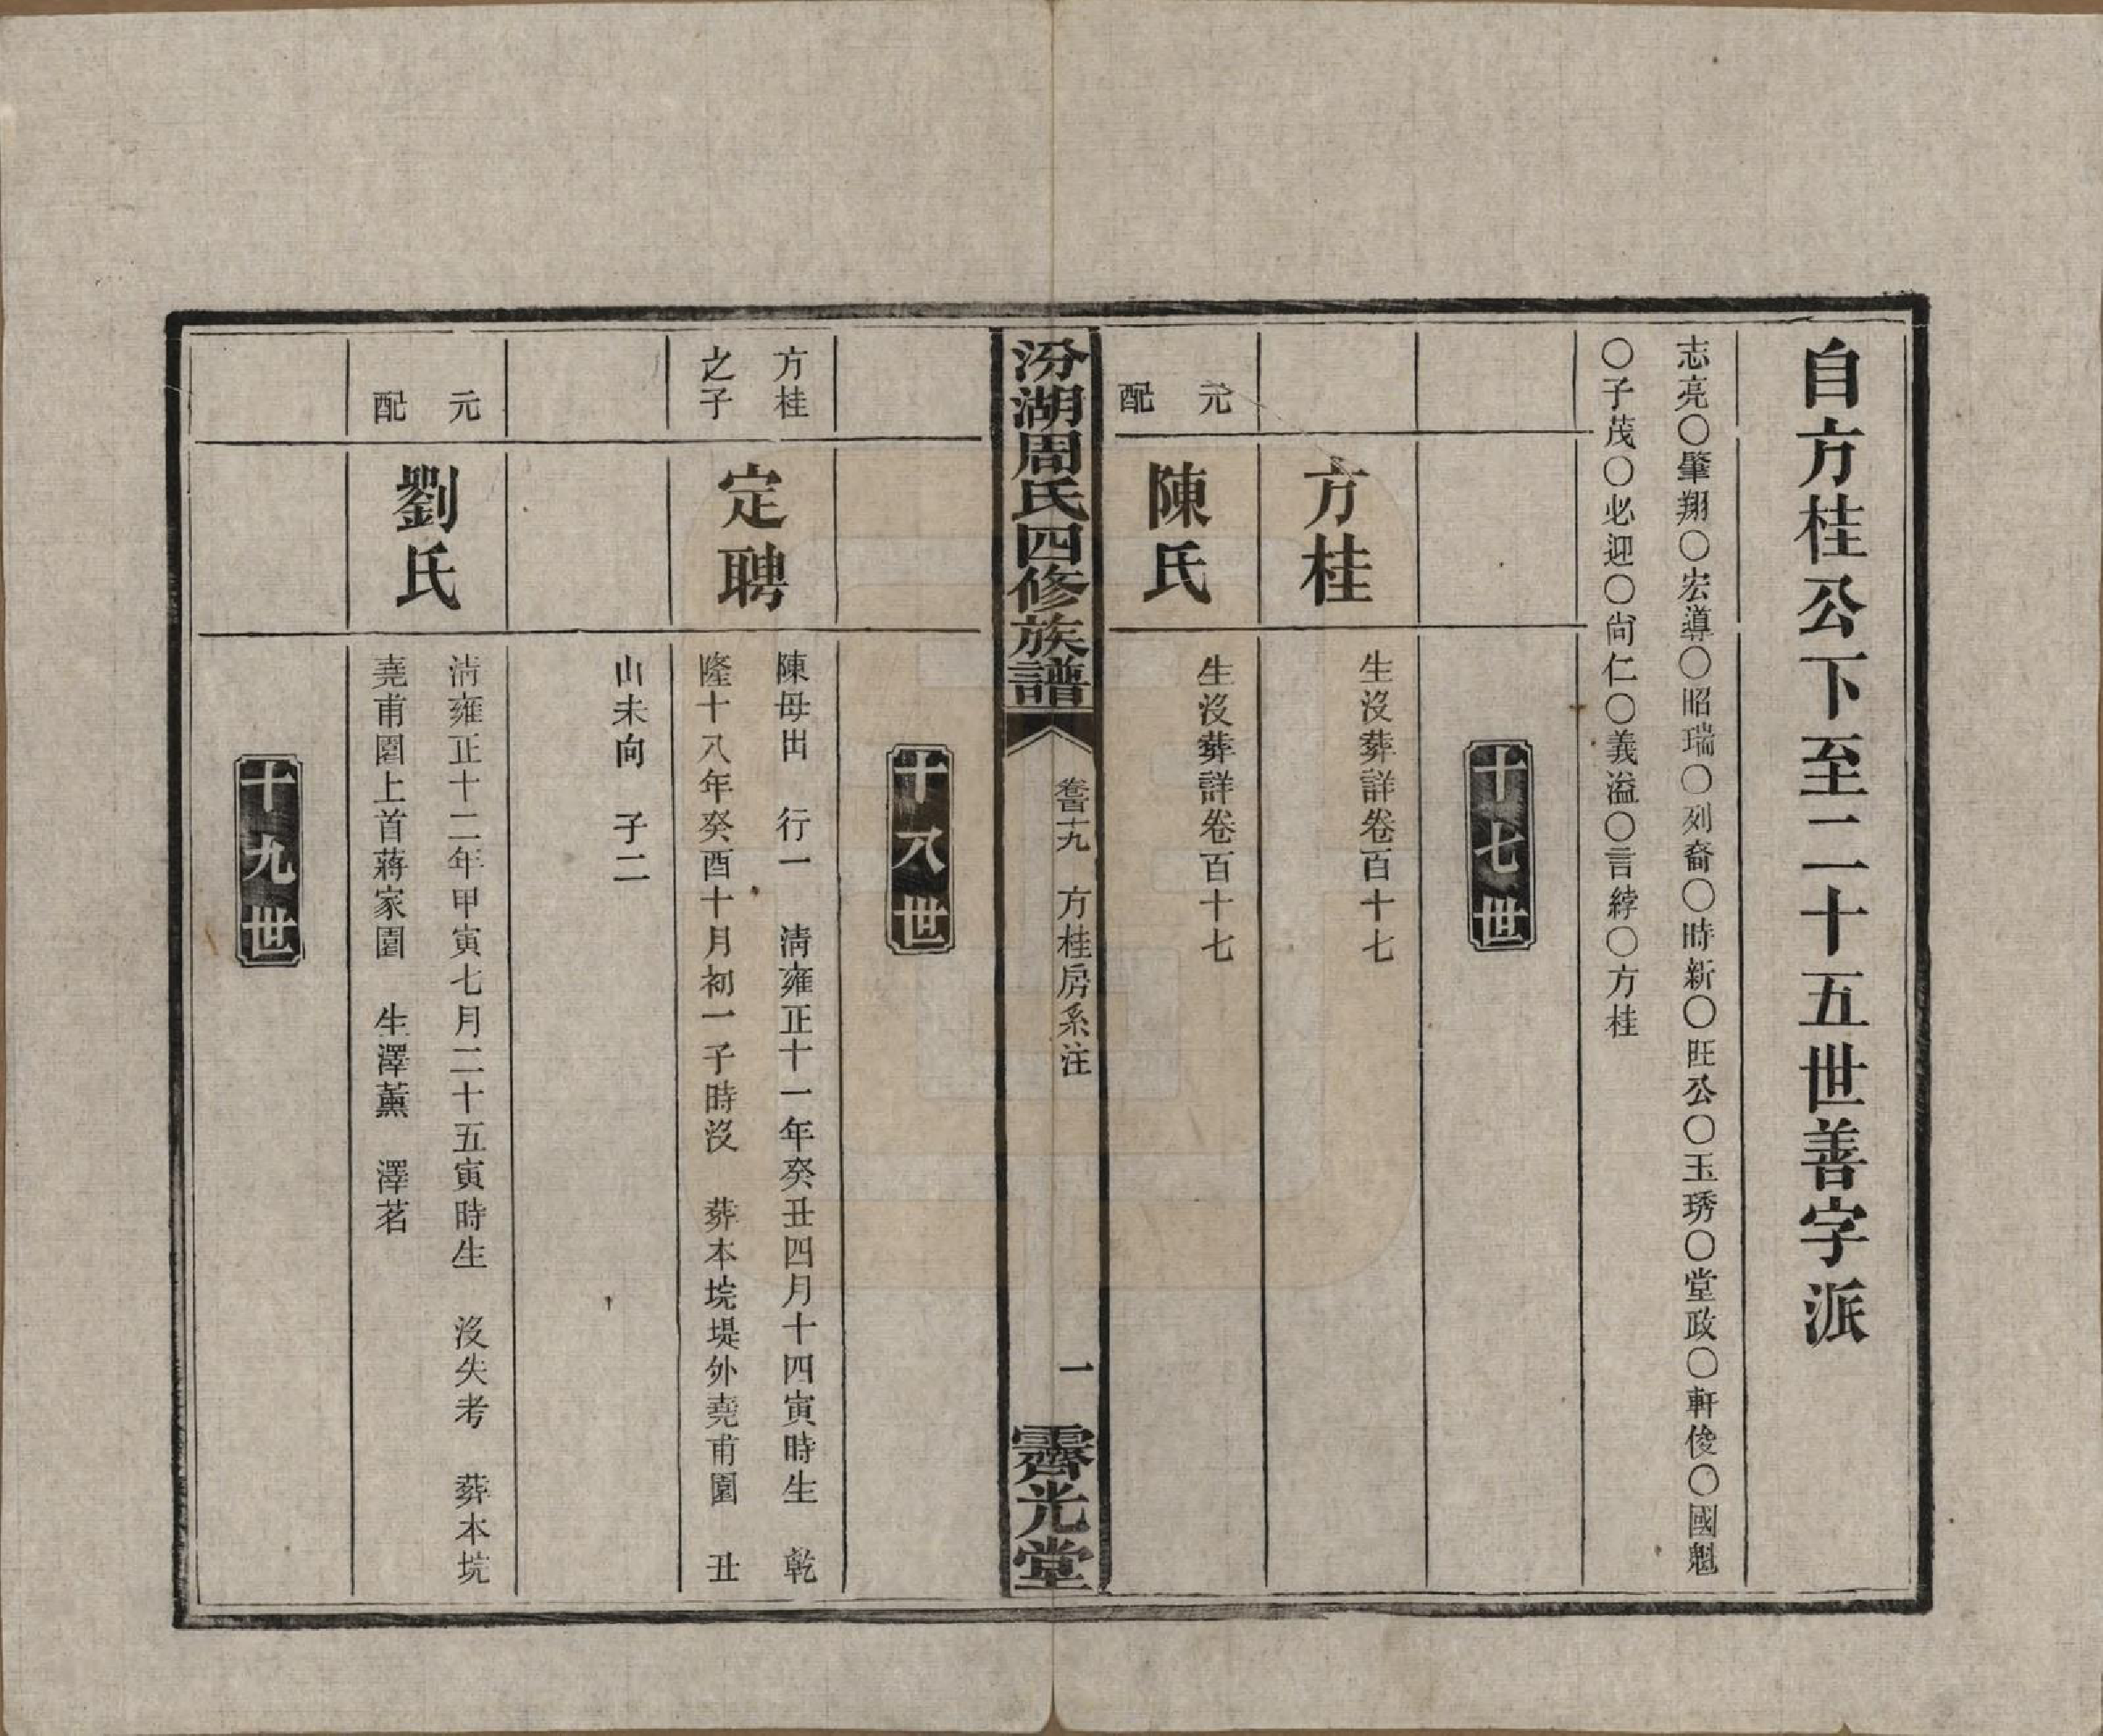 自方桂公下至二十五世善字派
志亮〇肇翔〇宏導〇昭瑞〇列裔〇時新〇旺公〇玉琇〇堂政〇軒俊〇國魁
〇子茂〇必迎〇尙仁〇義溢〇言綍〇方桂
十七世
方桂
生沒葬詳卷百十七
元配
陳氏
生沒葬詳卷百十七
汾湖周氏四修族譜
卷百十九
方桂房系注
一
霽光堂
十八世
方桂
之子
定聘
陳母出　行一　淸雍正十一年癸丑四月十四寅時生　乾
隆十八年癸酉十月初一子時沒　葬本垸堤外堯甫園　丑
山未向　子二
元配
劉氏
淸雍正十二年甲寅七月二十五寅時生　沒失考　葬本垸
堯甫園上首蔣家園　生澤薰　澤茗
十九世